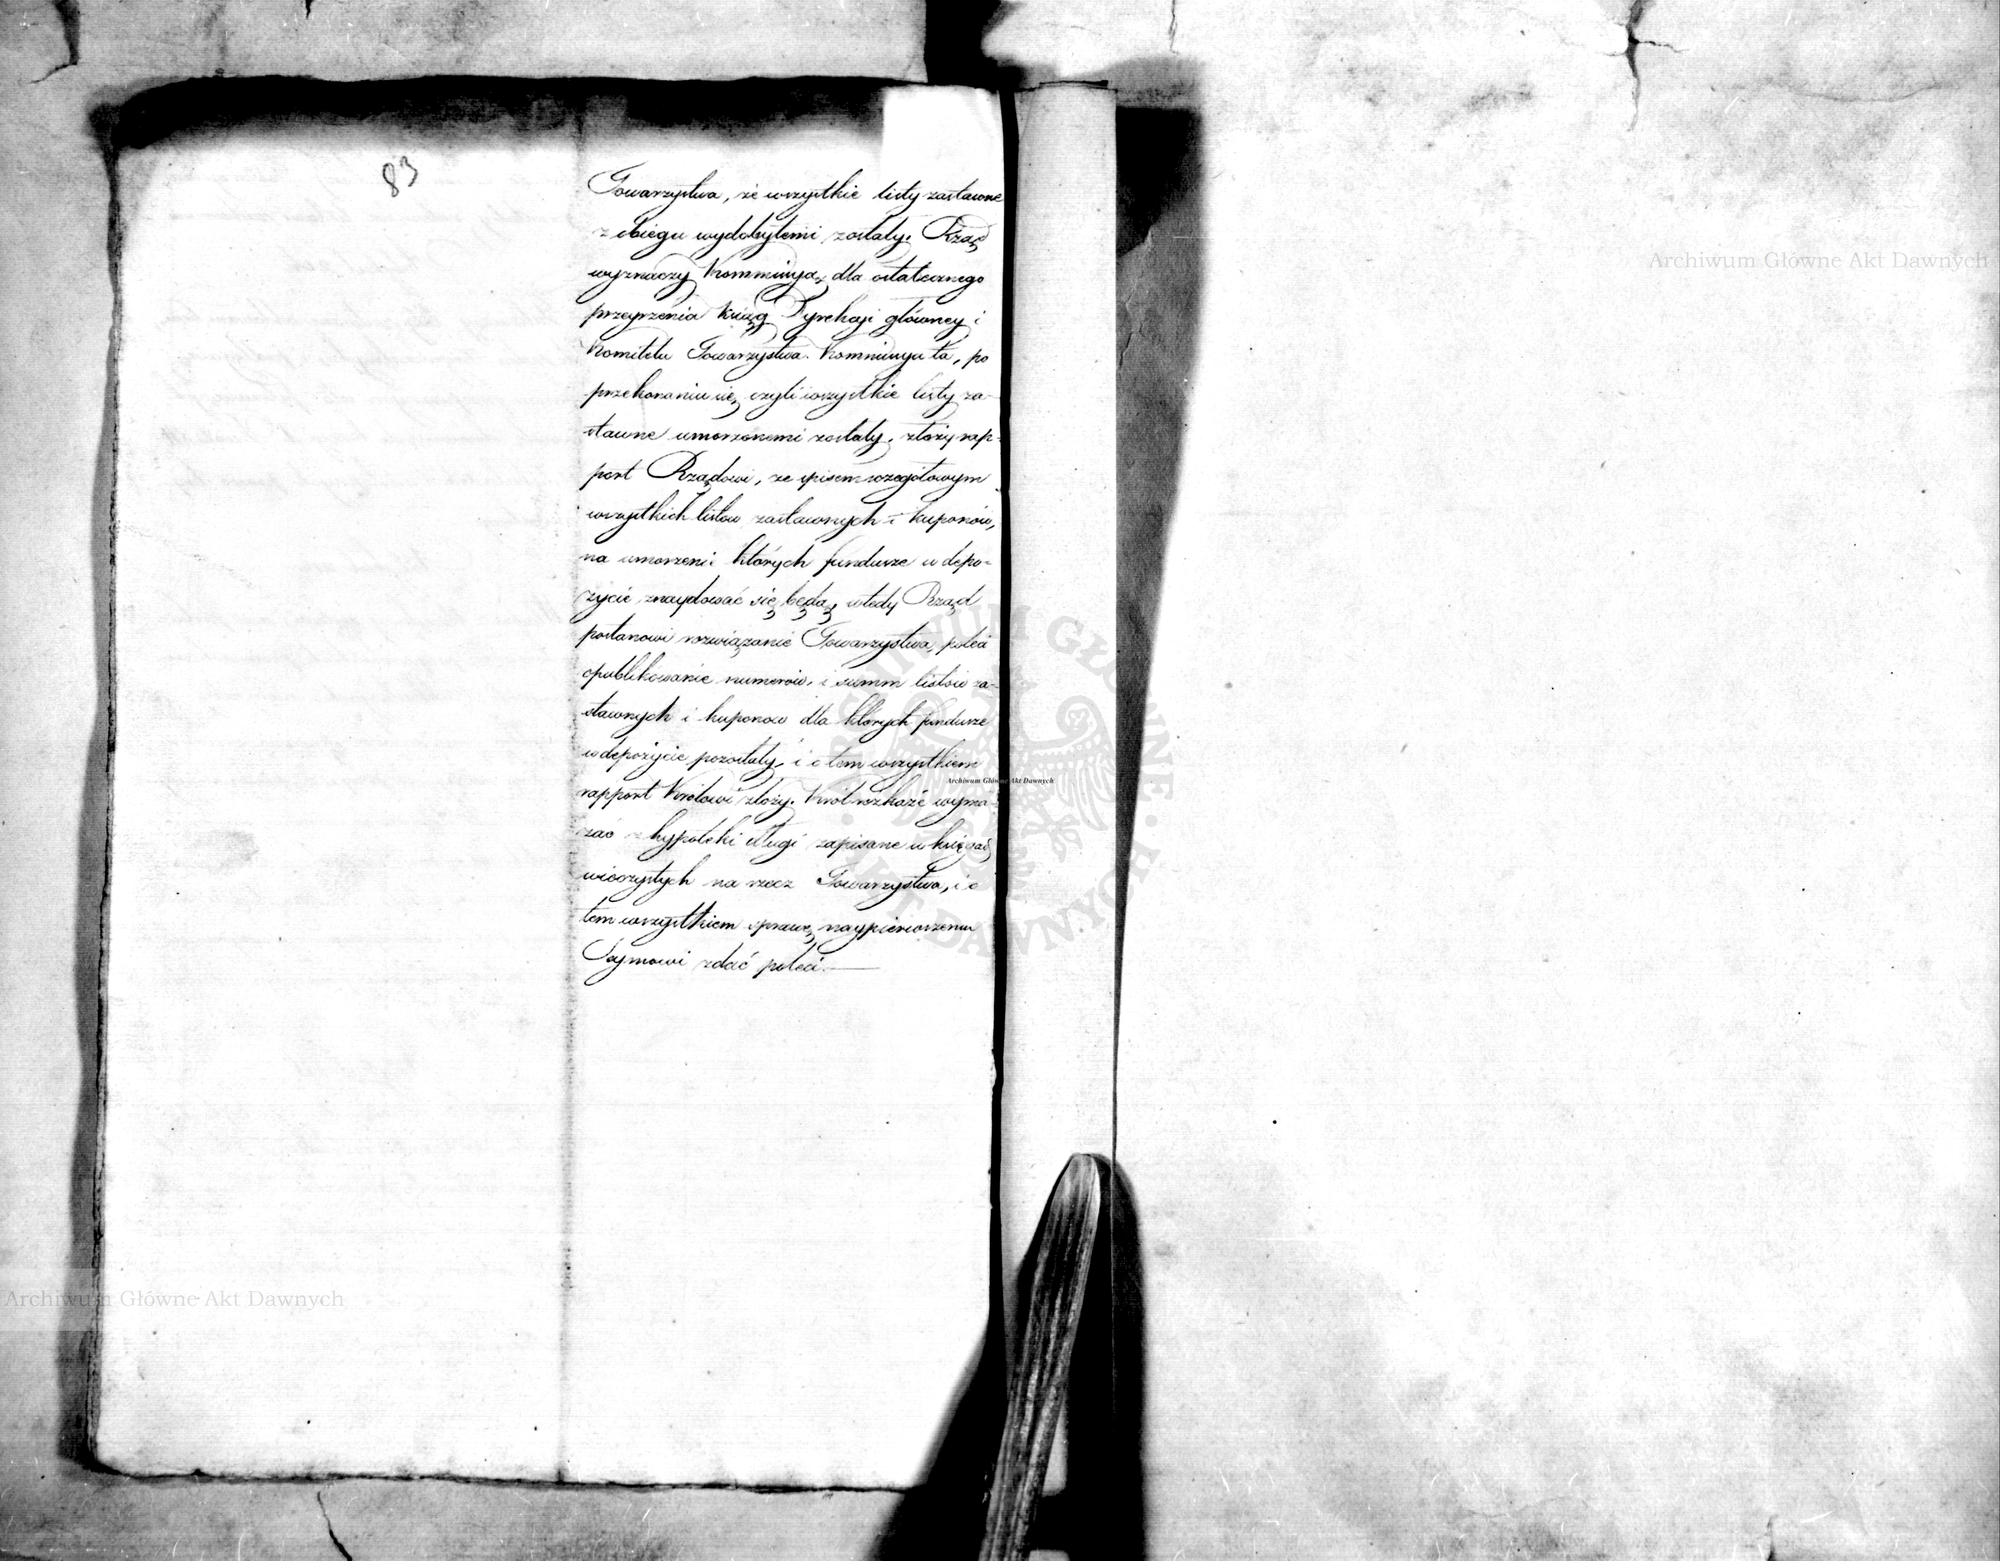 83
Towarzystwa, że wszystkie listy zastawne
z obiegu wydobytemi zostały. Rząd
wyznaczy Kommissyą, dla ostatecznego
przeyrzenia Xsiąg Dyrekcji główney i
Komitetu Towarzystwa. Kommissya ta, po
przekonaniu się, czyli wszystkie listy za-
stawne umorzonemi zostały, złoży rap-
port Rządowi, ze spisem szczegółowym
wszystkich listów zastawnych i kuponów,
na umorzenie których fundusze w depo-
zycie znaydować się będą, wtedy Rząd
postanowi rozwiązanie Towarzystwa, poleci
opublikowanie numerów, i summ listów za-
stawnych i kuponów dla których fundusze
w depozycie pozostały, i o tem wszystkiem
rapport Królowi złoży. Król rozkaże wyma-
zać z hypoteki długi zapisane w księgach
wieczystych na rzecz Towarzystwa, i o
tem wszystkiem sprawę naypierwszemu
Seymowi zdać poleci.
Archiwum Główne Akt Dawnych
Archiwum Główne Akt Dawnych
Archiwum Główne Akt Dawnych
ARCHIWUM GŁÓWNE AKT DAWNYCH